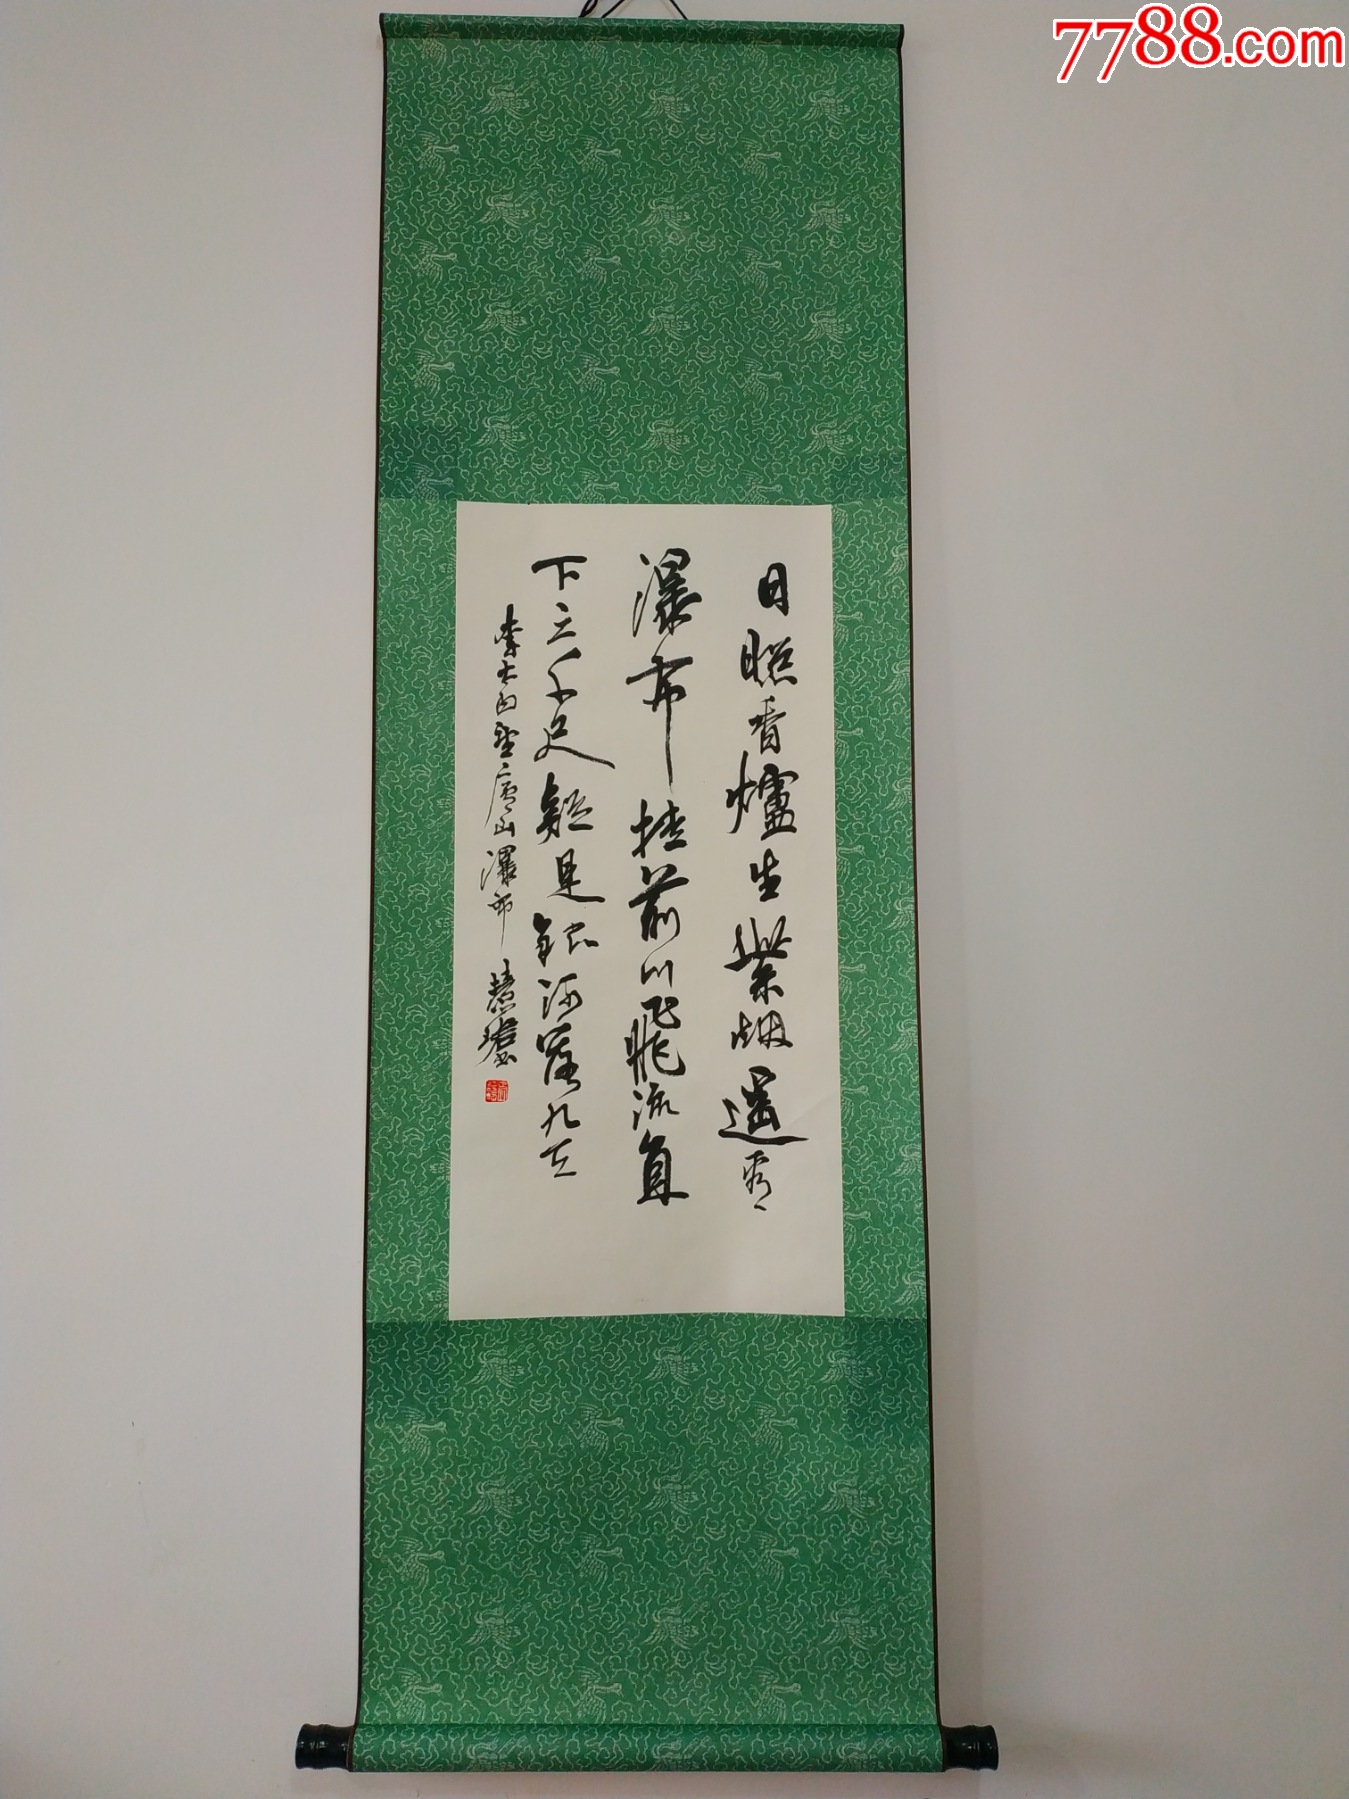 7788.com
日照香爐生紫烟遥看
瀑布掛前川飛流直
下三千尺疑是銀河落九天
李太白望廬山瀑布